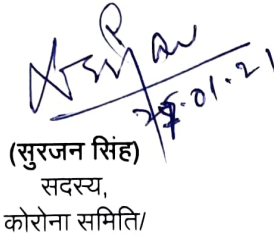 25.01.21
(सुरजन सिंह)
सदस्य,
कोरोना समिति/